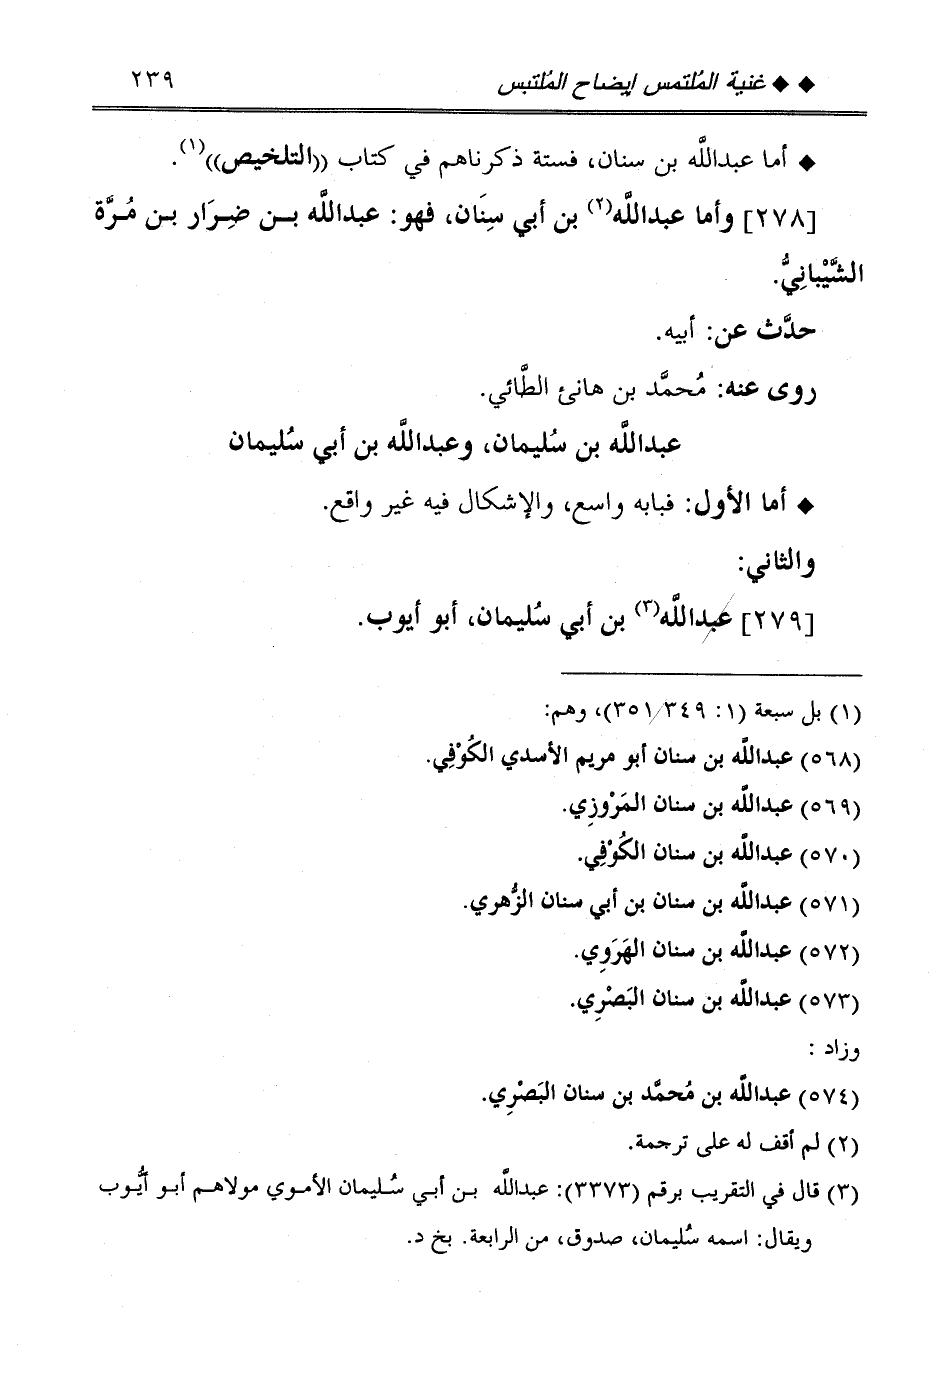 ◆ ◆ غنية المُلتمس إيضاح المُلتبس ٢٣٩
◆ أما عبدالله بن سنان، فستة ذكرناهم في كتاب ((التلخيص))(١).
[٢٧٨] وأما عبدالله(٢) بن أبي سِنَان، فهو: عبدالله بن ضِرَار بن مُرَّة
الشَّيْبانِيُّ.
حدَّث عن: أبيه.
روى عنه: مُحمَّد بن هانئ الطَّائي.
عبدالله بن سُليمان، وعبدالله بن أبي سُليمان
◆ أما الأول: فبابه واسع، والإشكال فيه غير واقع.
والثاني:
[٢٧٩] عبدالله(٣) بن أبي سُليمان، أبو أيوب.
(١) بل سبعة (١: ٣٤٩/ ٣٥١)، وهم:
(٥٦٨) عبدالله بن سنان أبو مريم الأسدي الكُوْفِي.
(٥٦٩) عبدالله بن سنان المَرْوزِي.
(٥٧٠) عبدالله بن سنان الكُوْفِي.
(٥٧١) عبدالله بن سنان بن أبي سنان الزُّهري.
(٥٧٢) عبدالله بن سنان الهَرَوِي.
(٥٧٣) عبدالله بن سنان البَصْرِي.
وزاد :
(٥٧٤) عبدالله بن مُحمَّد بن سنان البَصْرِي.
(٢) لم أقف له على ترجمة.
(٣) قال في التقريب برقم (٣٣٧٣): عبدالله بن أبي سُليمان الأموي مولاهم أبو أيُّوب
ويقال: اسمه سُليمان، صدوق، من الرابعة. بخ د.